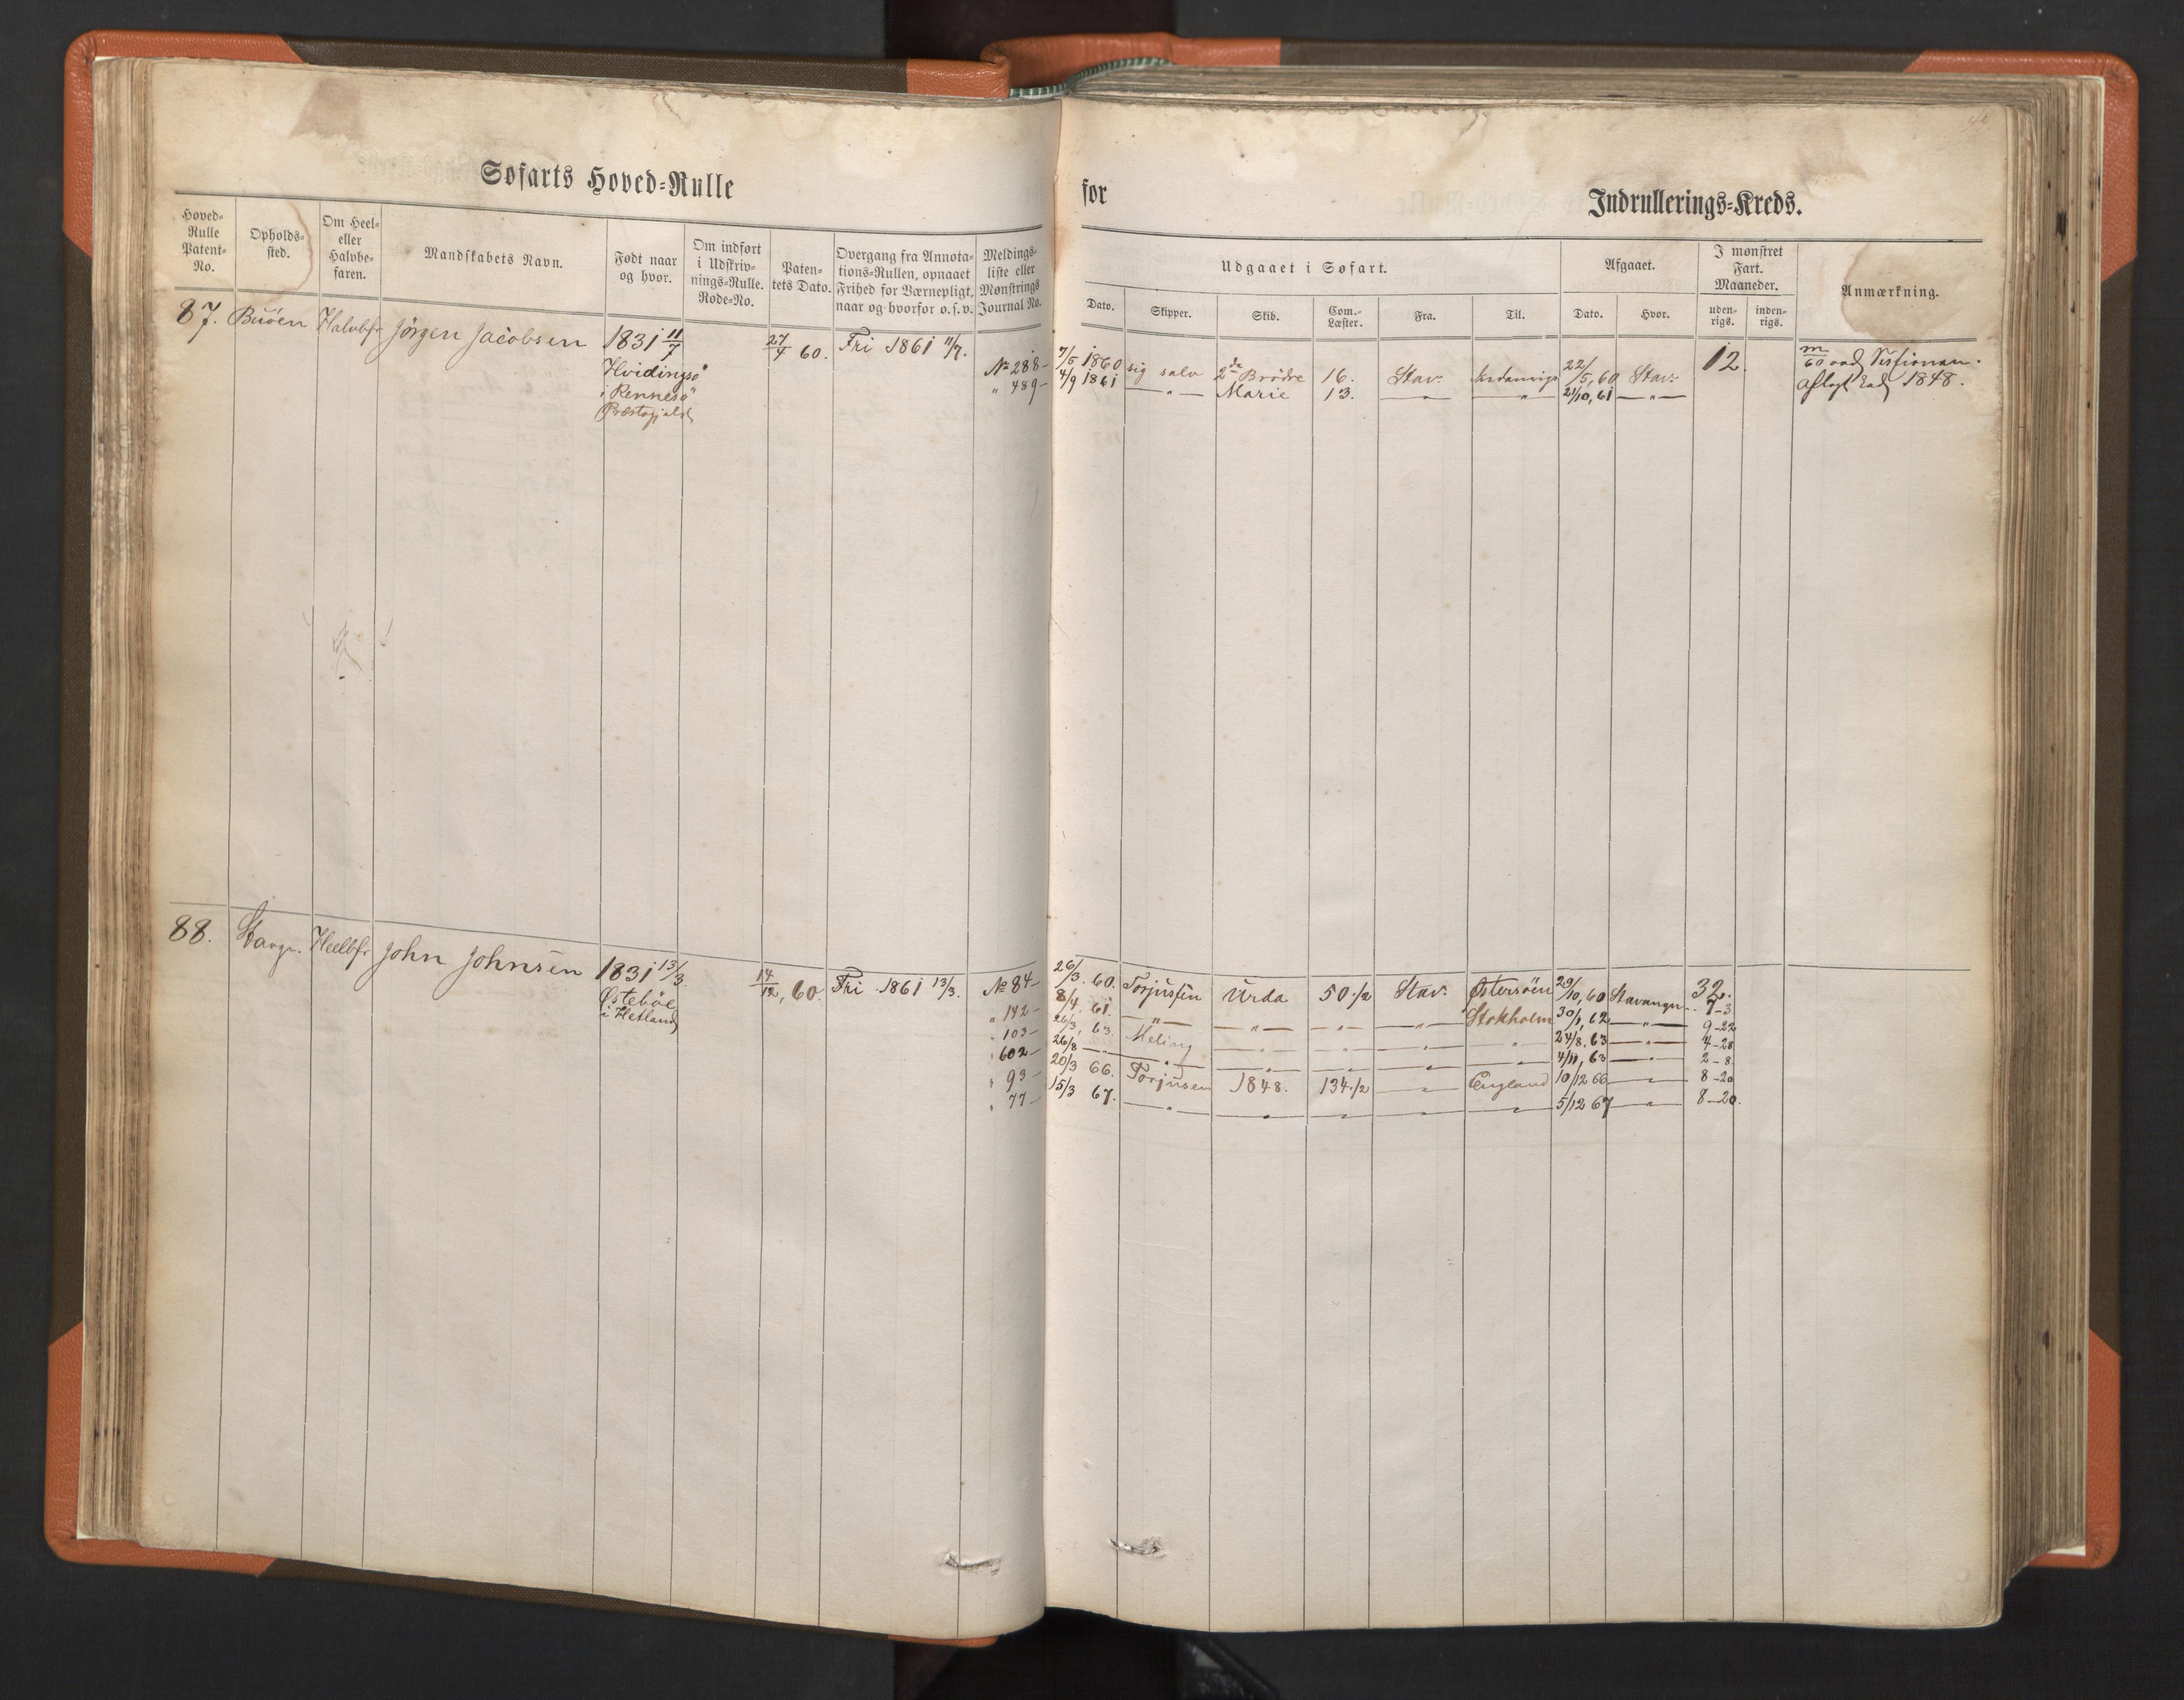 Søfarts Hoved-Rulle
for Indrullerings-Kreds.
Hoved-Rulle Patent-No.
Opholds-sted.
Om Heel- eller Halvbe-faren.
Mandskabets Navn.
Født naar og hvor.
Om indført i Udskriv-nings-Rulle. Rode-No.
Paten-tets Dato.
Overgang fra Annota-tions-Rullen, opnaaet Frihed for Værnepligt, naar og hvorfor o.s.v.
Meldings-liste eller Mønstrings Journal No.
Udgaaet i Søfart.
Dato. Skipper. Skib. Com.-Læster. Fra. Til.
Afgaaet.
Dato. Hvor.
I mønstret Fart. Maaneder.
uden-rigs. inden-rigs.
Anmærkning.
87. Buöen Halvbf. Jörgen Jacobsen 1831 11/7 27/4 60. Fri 1861 11/7.
Hvidingsö
i Rennesö
Præstegjeld
No 288 - 7/5 1860 sig selv 2de Brödre 16. Stav. 22/5, 60 Stav. 12.
" 489 - 4/9 1861 — " — Marie 13. — " — — " — 21/10, 61 — " —
1848.
88. Stavgr. Heelbf. John Johnsen 1831 13/3. 14/12, 60. Fri 1861 13/3.
Østeböe
i Hetland
No 84 - 26/3. 60. Torjusen Urda 50 1/2 Stav. Østersöen 29/10, 60 Stavanger 32.
" 142 - 8/4. 61. — " — — " — — " — — " — Stokholm 30/1, 62 — " — 7-3
" 103 - 26/3, 63. Meling — " — — " — — " — — " — 24/8, 63 — " — 9-22
" 602 - 26/8 — — " — — " — — " — — " — — " — 4/11, 63 — " — 4-28
2-8
" 93 - 20/3 66. Torjusen 1848. 134 1/2 — " — England 10/12 66 — " — 8-20
" 77 - 15/3 67. — " — — " — — " — — " — — " — 5/12 67 — " — 8-20.